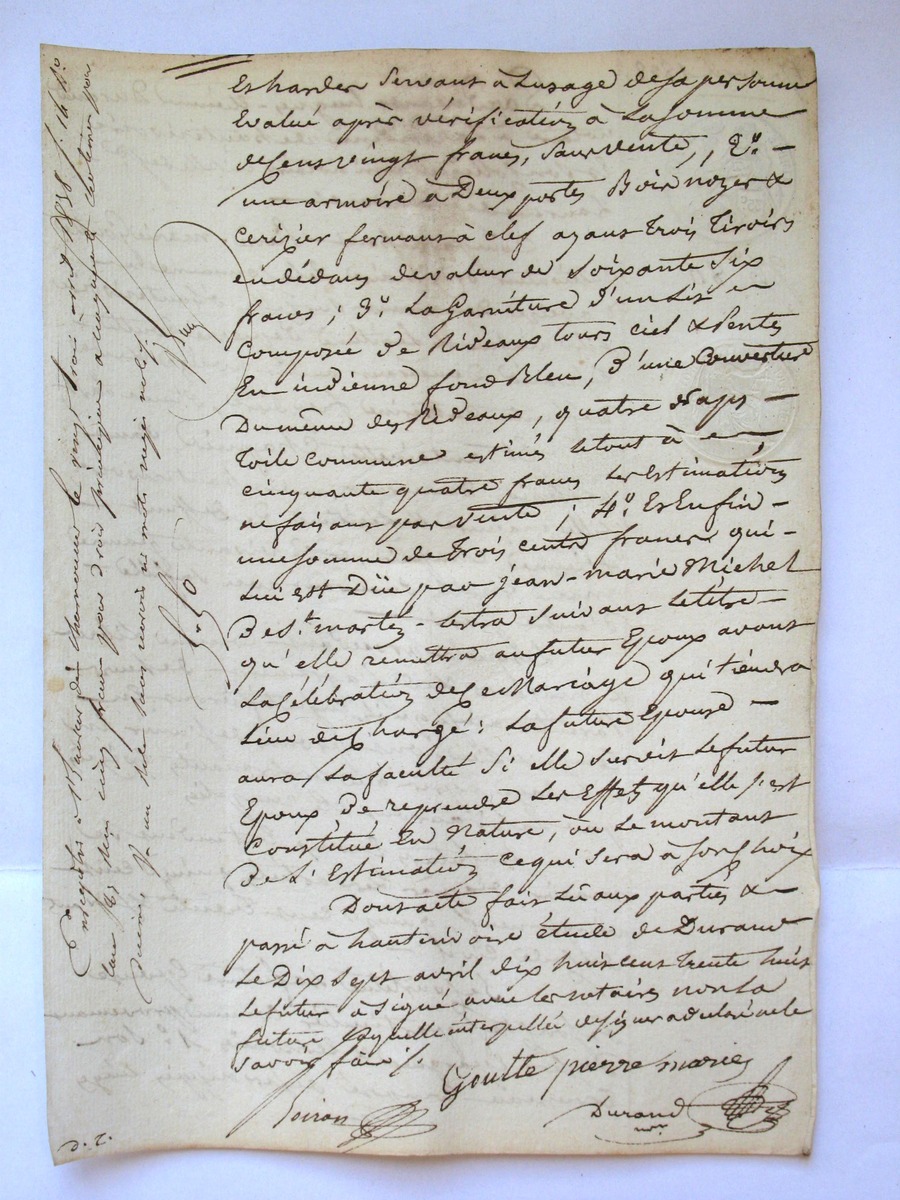 et hardes servant à l'usage de sa personne
évalué après vérification à la somme
de Cent vingt francs, sans vente, 2.º
une armoire à Deux portes Bois noyer &
cerizier fermant à clef ayant trois tiroirs
en dédans de valeur de soixante six
francs; 3.º La Garniture d'un Lit en
Composée de Rideaux tours ciel & Pentes
En indienne fond Bleu, D'une Couverture
Du même des Rideaux, quatre draps
toile commune estimés le tout à
cinquante quatre francs les Estimations
ne faisant pas vente; 4.º Et Enfin
une somme de trois cents francs qui
Lui est Düe par jean-marie Michel
De S.t martin-lestra suivant le titre
qu'elle remettra au futur Epoux avant
La Célébration de Ce Mariage qui tiendra
Lieu de Chargé: La future Epouse
aura La faculté si elle survit Le futur
Epoux De reprendre Les Effets qu'elle s'est
Constitué En Nature, ou Le montant
De L'Estimation ce qui sera à son Choix
Dont acte fait Lu aux parties &
passé à hauterivoire étude de Durand
Le Dix sept avril dix huit cent trente huit
Le futur à signé avec les notaires non La
future Laquelle interpellée de signer a déclaré ne le
savoir faire /.
Goutte pierre marie
Boiron
Durand
n.re
D. T.
Enregistré à St Laurent de Chamousset le vingt trois avril 1838 f. 14 v.º
cinq francs pour droit
un mot rayé nul.